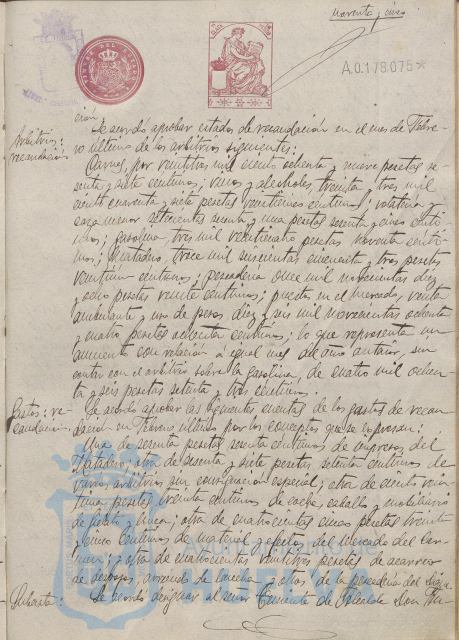 noventa y cinco
A.0.178.075*
ción.
Arbitrios: recaudación
Se acordó aprobar estados de recaudación en el mes de Febre-
ro último de los arbitrios siguientes:
Carnes, por veintitres mil ciento ochenta y nueve pesetas se-
senta y siete centimos; vinos y alcoholes, treinta y tres mil
ciento cuarenta y siete pesetas veintiun centimos; volatería y
caza menor setecientas sesenta y una pesetas sesenta y cinco centi-
mos; gasolina, tres mil veinticuatro pesetas noventa centi-
mos; Matadero, trece mil seiscientas cincuenta y tres pesetas
veintiún centimos; pescadería once mil novecientas diez
y ocho pesetas veinte centimos; puestos en el Mercado, venta
ambulante y uso de pesas, diez y seis mil novecientas ochenta
y cuatro pesetas ochenta centimos; lo que representa un
aumento con relación a igual mes del año anterior, sin
contar con el arbitrio sobre la gasolina, de cuatro mil ochen-
ta y seis pesetas setenta y tres centimos.
Gastos: re-
caudación.
Se acordó aprobar las siguientes cuentas de los gastos de recau-
dación en Febrero último por los conceptos que se expresan:
Una de sesenta pesetas sesenta centimos de impresos del
Matadero; otra de sesenta y siete pesetas setenta centimos de
varios arbitrios sin consignación especial; otra de ciento vein-
tiuna pesetas treinta centimos de coche, caballo y mobiliario
de; otra de cuatrocientas cinco pesetas treinta
y cinco centimos de material y efectos del Mercado del Car-
men; y otra de cuatrocientas veintitres pesetas de acarreo
de despojos, arriendo de lancha y otros de la pescadería del
Subasta:
Se acordó designar al señor Teniente de Alcalde Don
Ayuntamiento de
HUELVA